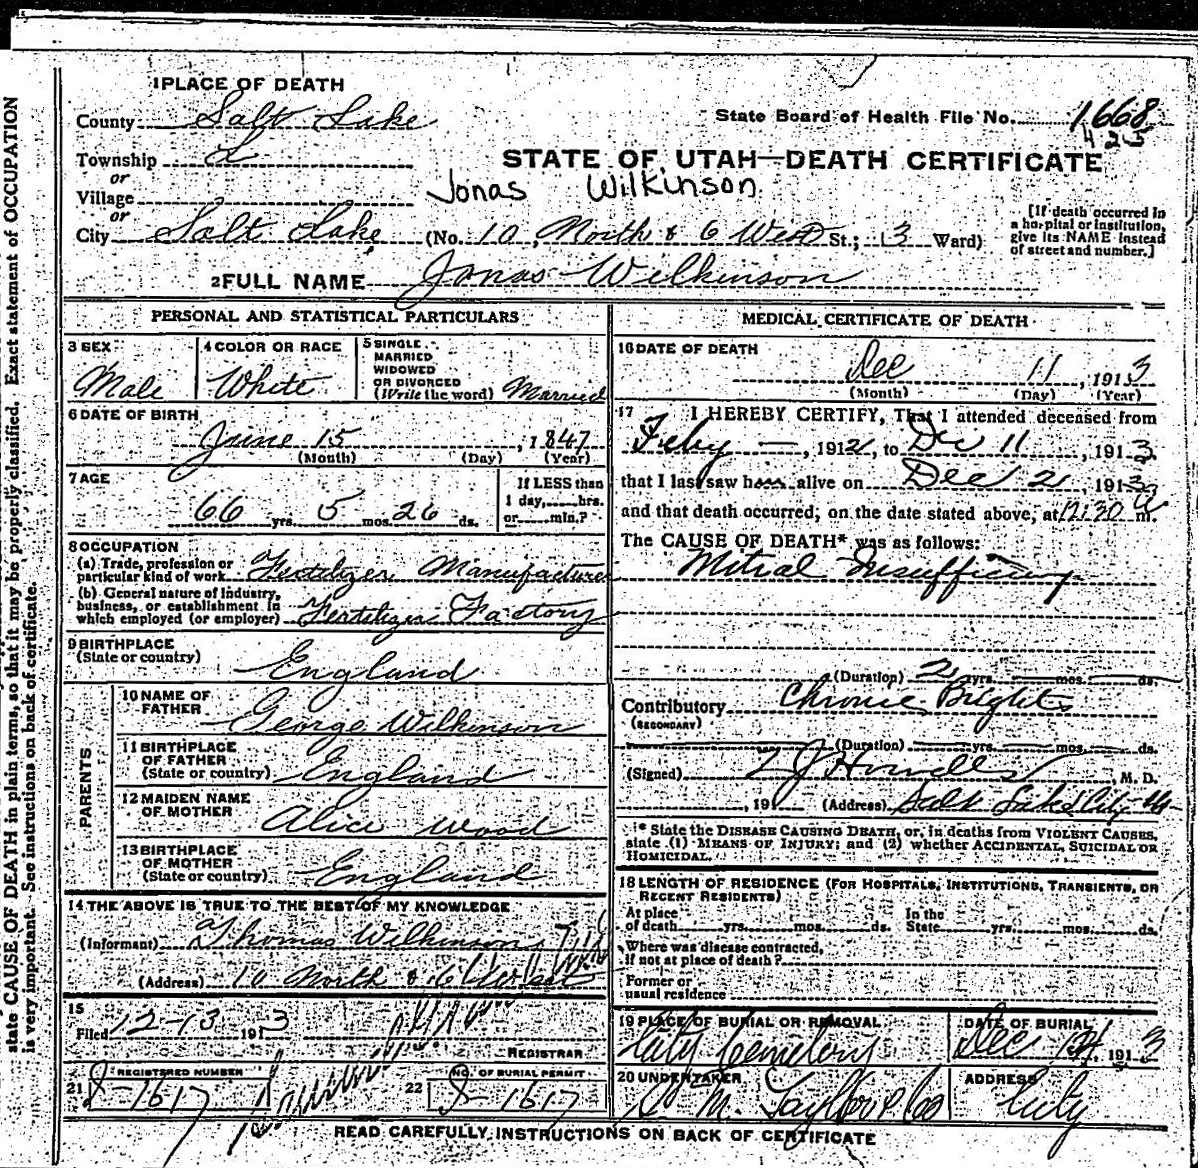 1 PLACE OF DEATH
County Salt Lake
State Board of Health File No. 1668
425
Township L
or
Village
or
STATE OF UTAH—DEATH CERTIFICATE
Jonas Wilkinson
City Salt Lake (No. 10, North & 6 West St.; 3 Ward)
[If death occurred in
a hospital or institution,
give its NAME instead
of street and number.]
2 FULL NAME Jonas Wilkinson
PERSONAL AND STATISTICAL PARTICULARS
3 SEX
Male
4 COLOR OR RACE
White
5 SINGLE
MARRIED
WIDOWED
OR DIVORCED
(Write the word) Married
6 DATE OF BIRTH
June 15, 1847
(Month) (Day) (Year)
7 AGE
66 yrs. 5 mos. 26 ds.
If LESS than
1 day, hrs.
or min.?
8 OCCUPATION
(a) Trade, profession or
particular kind of work Fertilizer Manufacturer
(b) General nature of industry,
business, or establishment in
which employed (or employer) Fertilizer Factory
9 BIRTHPLACE
(State or country)
England
PARENTS
10 NAME OF
FATHER
George Wilkinson
11 BIRTHPLACE
OF FATHER
(State or country) England
12 MAIDEN NAME
OF MOTHER
Alice Wood
13 BIRTHPLACE
OF MOTHER
(State or country) England
14 THE ABOVE IS TRUE TO THE BEST OF MY KNOWLEDGE
(Informant) Thomas Wilkinson
(Address) 10 North & 6 West
15
Filed 12-13 1913
REGISTRAR
21 REGISTERED NUMBER
S-1617
22 NO. OF BURIAL PERMIT
S-1617
MEDICAL CERTIFICATE OF DEATH
16 DATE OF DEATH
Dec 11, 1913
(Month) (Day) (Year)
17 I HEREBY CERTIFY, That I attended deceased from
Feby —, 1912, to Dec 11, 1913
that I last saw him alive on Dec 2, 1913
and that death occurred, on the date stated above, at 12:30 a m.
The CAUSE OF DEATH* was as follows:
Mitral Insufficiency
(Duration) 2 yrs. mos. ds.
Contributory Chronic Brights
(SECONDARY)
(Duration) yrs. mos. ds.
(Signed) Howells, M. D.
, 191 (Address) Salt Lake City Ut
* State the DISEASE CAUSING DEATH, or, in deaths from VIOLENT CAUSES,
state (1) MEANS OF INJURY; and (2) whether ACCIDENTAL, SUICIDAL OR
HOMICIDAL.
18 LENGTH OF RESIDENCE (FOR HOSPITALS, INSTITUTIONS, TRANSIENTS, OR
RECENT RESIDENTS)
At place
of death yrs. mos. ds.
In the
State yrs. mos. ds.
Where was disease contracted,
if not at place of death?
Former or
usual residence
19 PLACE OF BURIAL OR REMOVAL
City Cemetery
DATE OF BURIAL
Dec 14, 1913
20 UNDERTAKER
S. M. Taylor & Co
ADDRESS
City
READ CAREFULLY INSTRUCTIONS ON BACK OF CERTIFICATE
state CAUSE OF DEATH in plain terms, so that it may be properly classified. Exact statement of OCCUPATION
is very important. See instructions on back of certificate.